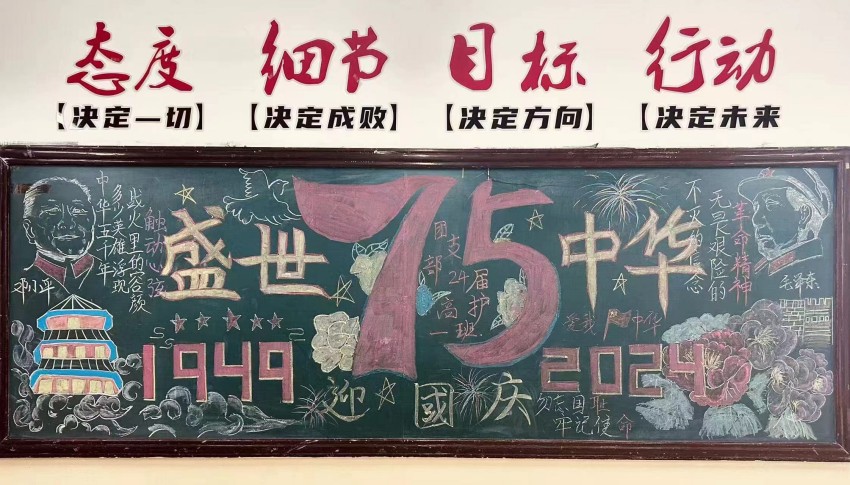 态度 细节 目标 行动
【决定一切】 【决定成败】 【决定方向】 【决定未来
中华五千年
多少英雄浮现
战火里的容颜
触动心弦
邓小平
盛世
75
中华
团支部
24届护
高一班
不灭的信念
无畏艰险的
革命精神
毛泽东
爱我中华
1949
2024
迎國庆
勿忘国耻
牢记使命